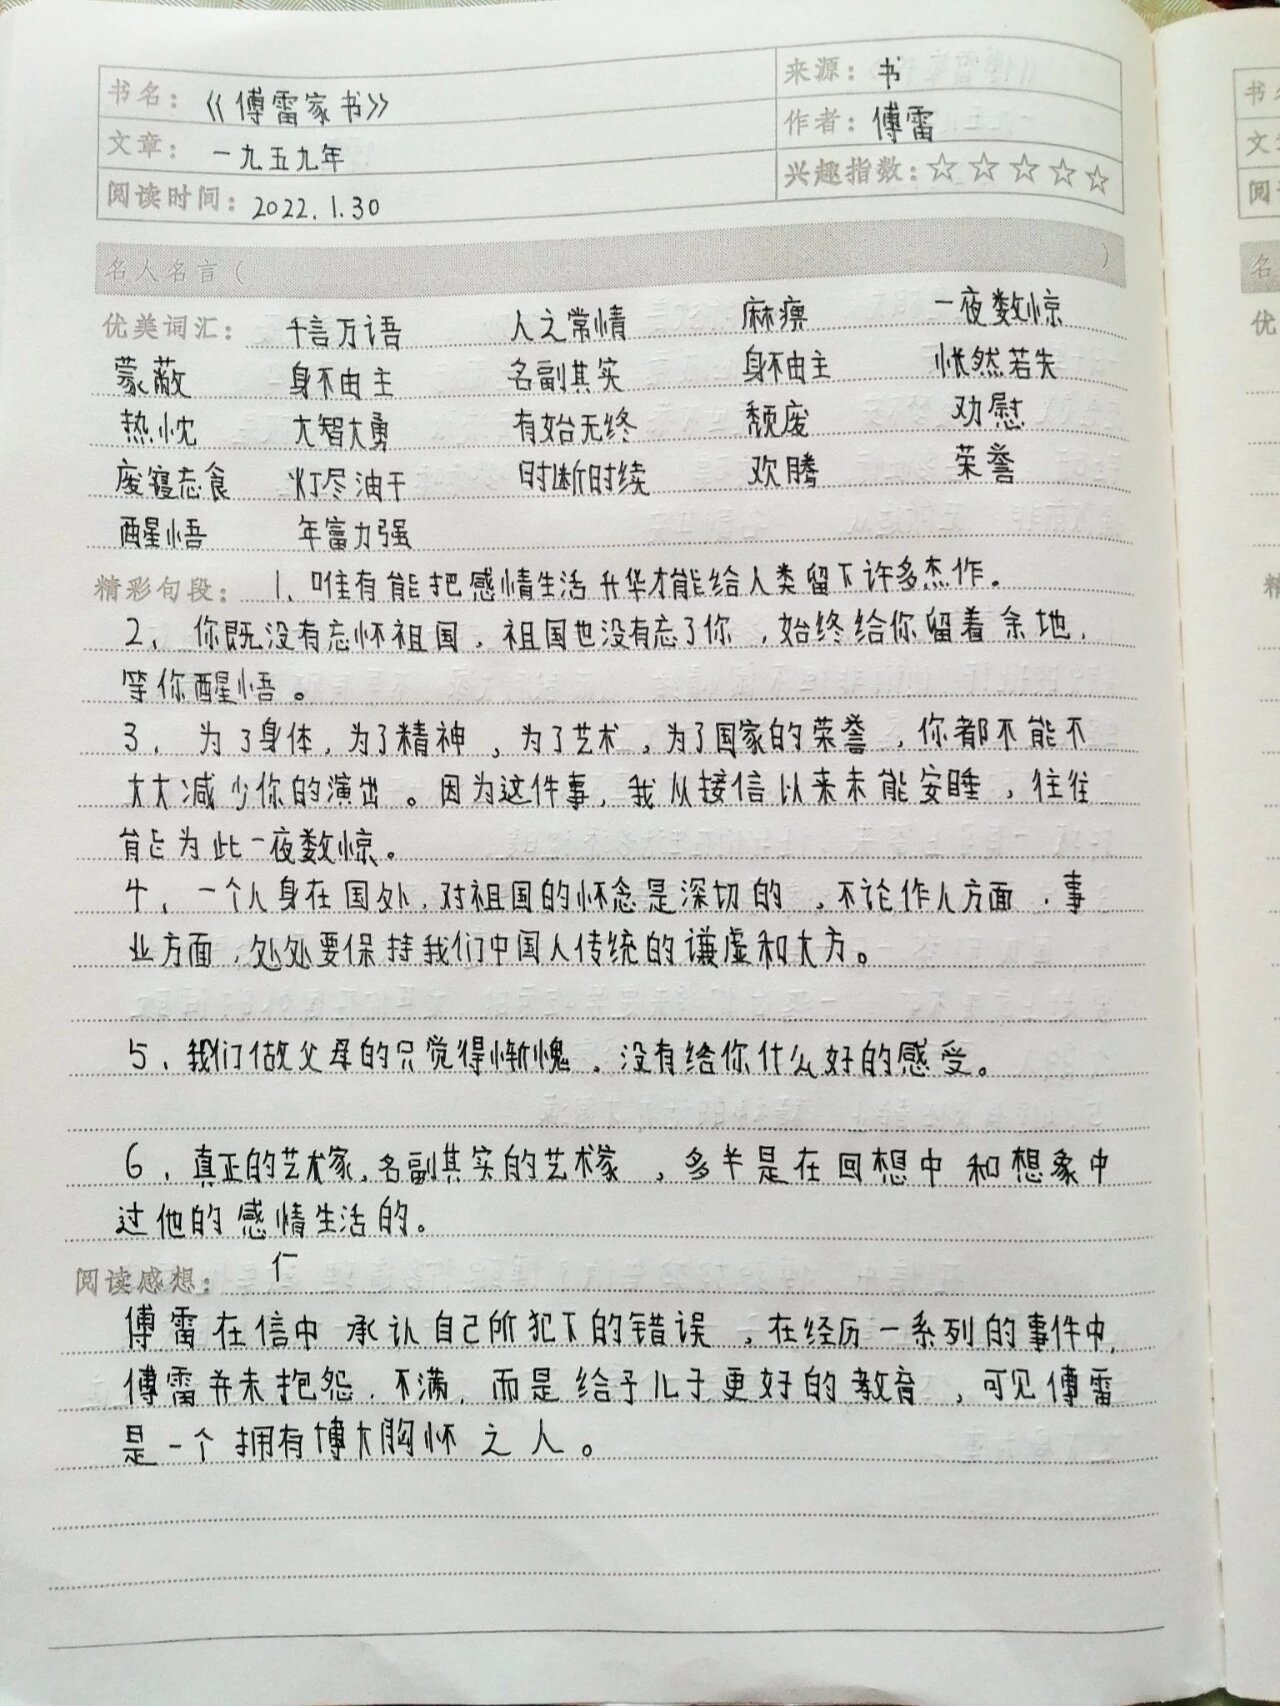 书名：《傅雷家书》 来源：书
文章：一九五九年 作者：傅雷
阅读时间：2022.1.30 兴趣指数：☆☆☆☆☆
名人名言（ ）
优美词汇： 千言万语 人之常情 麻痹 一夜数惊
蒙蔽 身不由主 名副其实 身不由主 怅然若失
热忱 大智大勇 有始无终 颓废 劝慰
废寝忘食 灯尽油干 时断时续 欢腾 荣誉
醒悟 年富力强
精彩句段： 1、唯有能把感情生活升华才能给人类留下许多杰作。
2、你既没有忘怀祖国，祖国也没有忘了你，始终给你留着余地，
等你醒悟。
3、为了身体，为了精神，为了艺术，为了国家的荣誉，你都不能不
大大减少你的演出。因为这件事，我从接信以来未能安睡，往往
能为此一夜数惊。
4、一个人身在国外，对祖国的怀念是深切的，不论作人方面，事
业方面，处处要保持我们中国人传统的谦虚和大方。
5、我们做父母的只觉得惭愧。没有给你什么好的感受。
6、真正的艺术家，名副其实的艺术家，多半是在回想中和想象中
过他的感情生活的。
阅读感想：
傅雷在信中承认自己所犯下的错误，在经历一系列的事件中，
傅雷并未抱怨，不满，而是给予儿子更好的教育，可见傅雷
是一个拥有博大胸怀之人。